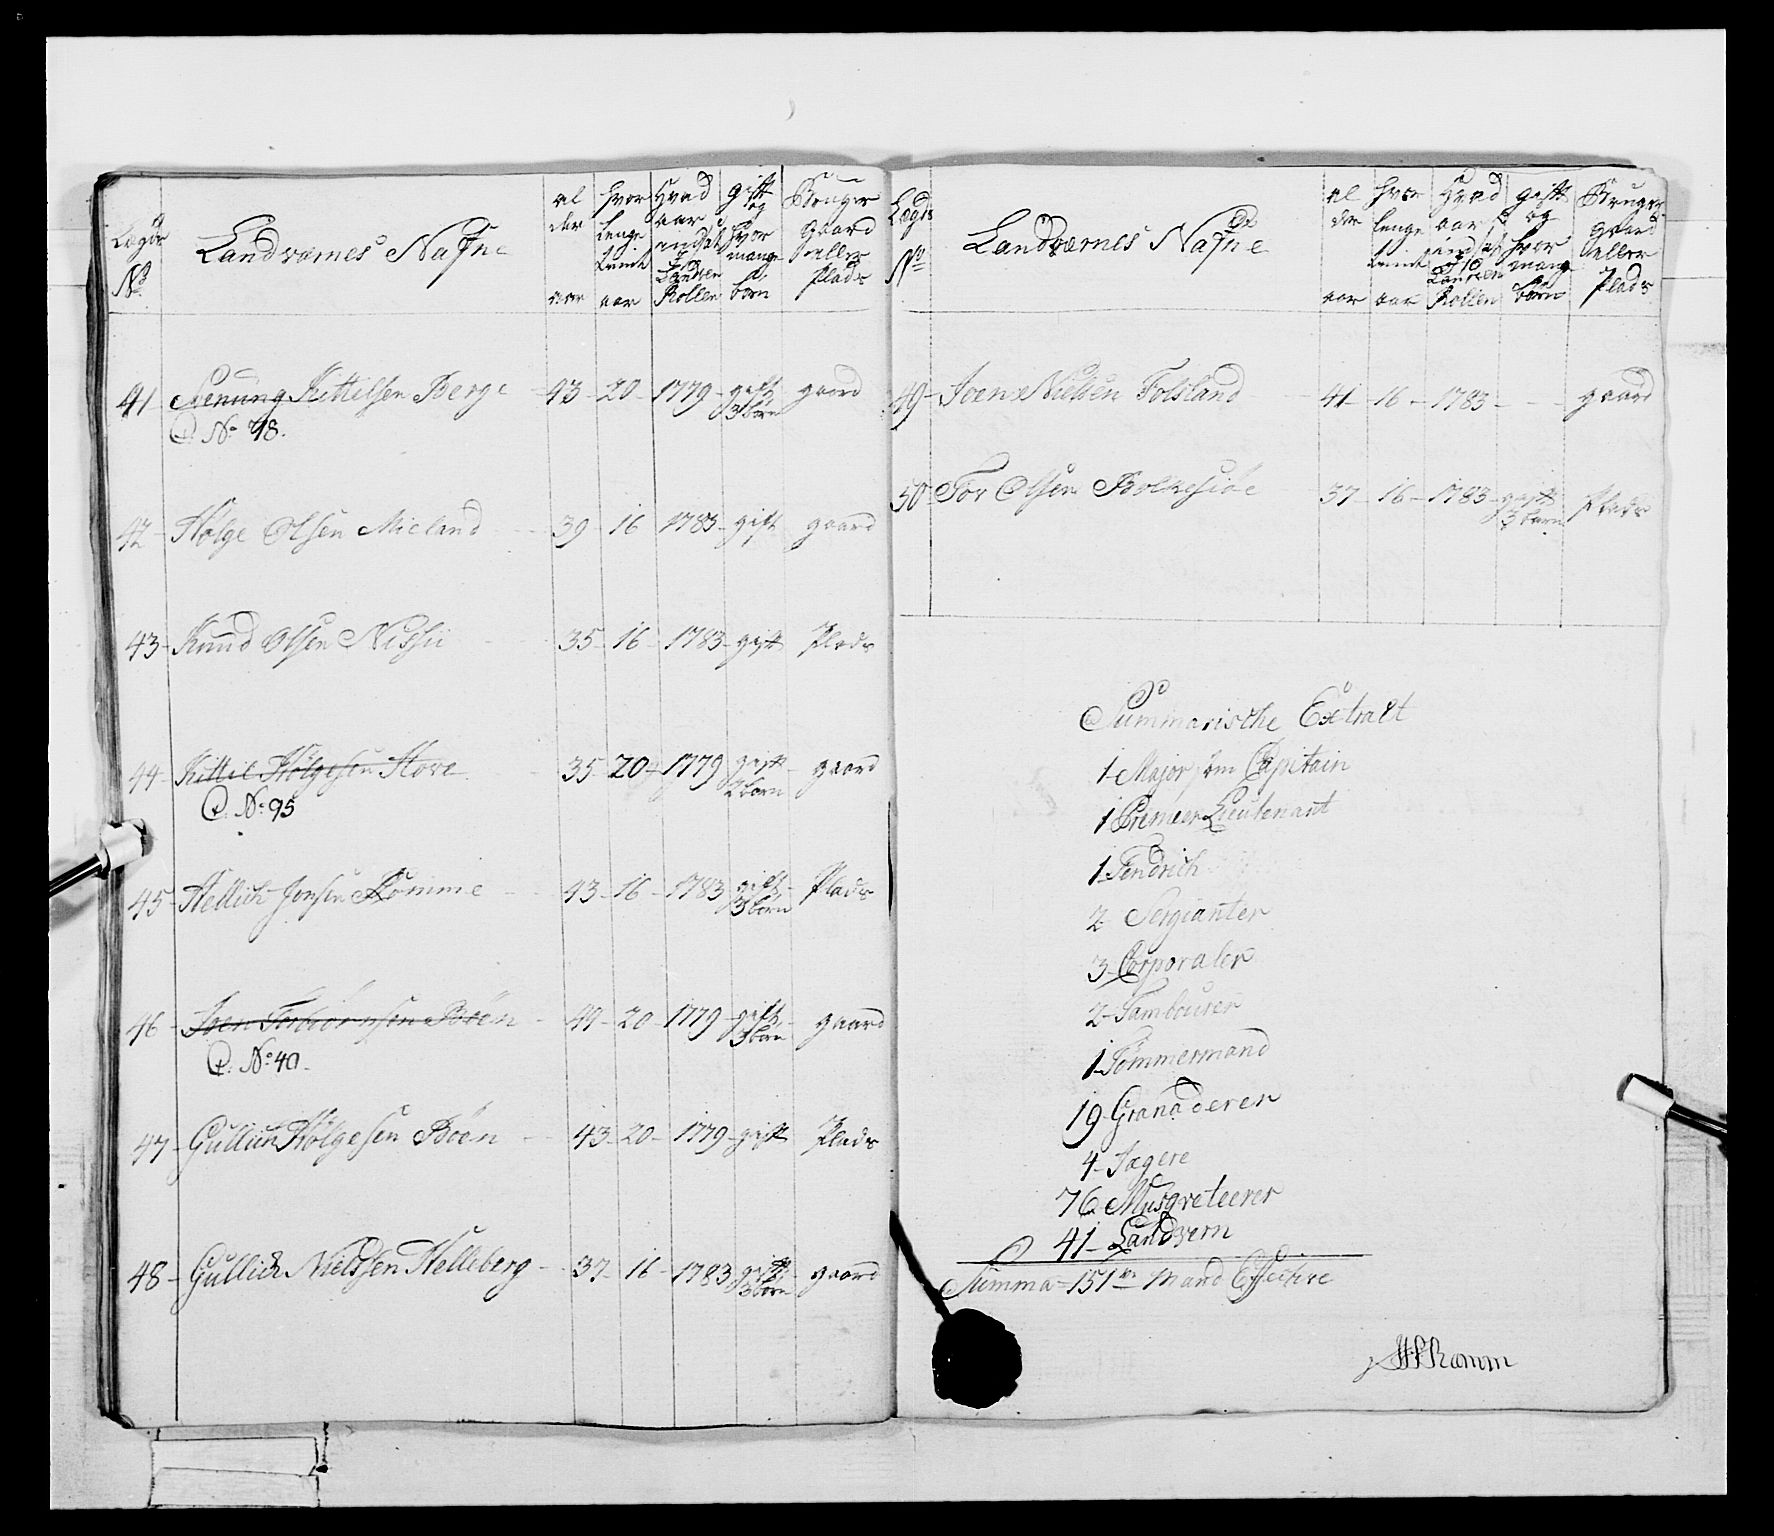 Lægds
No
Landværnes Nafne
al
der
aar
hvor
lenge
tient
aar
Hvad
aar
indsat
i
Landvern
Rollen
gift
og
hvor
mange
børn
Bruger
gaard
eller
Plads
41 Kittelsen Berge 43 20 1779 gift 3 børn gaard
C. No 48.
42 Holge Olsen Mieland 39 16 1783 gift gaard
43 Knud Olsen 35 16 1783 gift Plads
44 Kittil Holgesen Hove 35 20 1779 gift 2 børn gaard
C. No 95
45 Hellich Jonsen Romme 43 16 1783 gift 3 børn Plads
46 Joen Torbiørnsen Böen 49 20 1779 gift 3 børn gaard
C. No 40.
47 Holgesen Böen 43 20 1779 gift Plads
48 Gullich Nielssen Helleberg 37 16 1783 gift 3 børn gaard
Lægds
No
Landværnes Nafne
al
der
aar
hvor
lenge
tient
aar
Hvad
aar
indsat
i
Landvern
Rollen
gift
og
hvor
mange
børn
Bruger
gaard
eller
Plads
49 Joen Nielsen Folsland 41 16 1783 gaard
50 Tor Olsen Bolkesiöe 37 16 1783 gift 3 børn Plads
Summarische Extract
1 Major som Capitain
1 Premier Lieutenant
1 Fendrich
2 Sergianter
3 Corporaler
2 Tambourer
1 Tömmermand
19 Granaderer
4 Jægere
76 Musqveteerer
41 Landvern
Summa 151 Mand Effective
Ramm